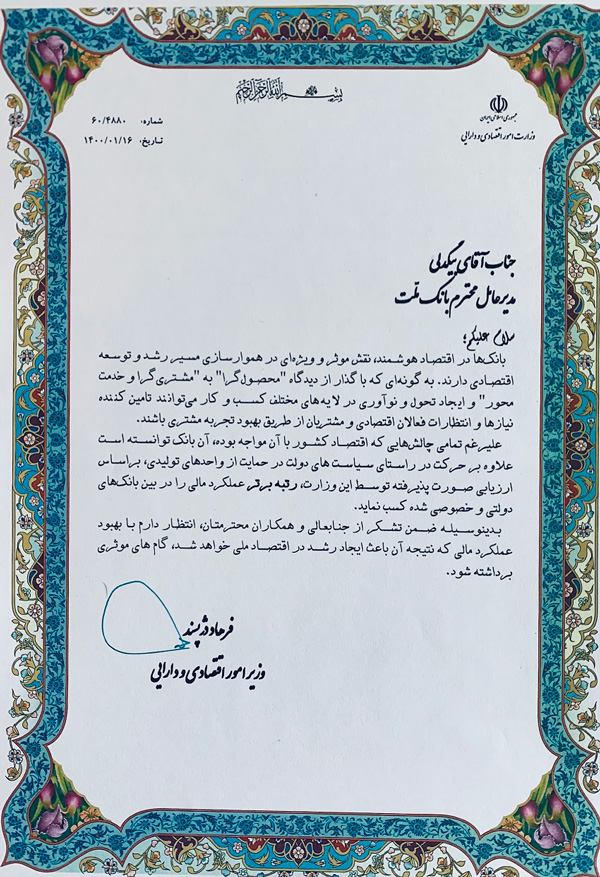 بسم الله الرحمن الرحیم
جمهوری اسلامی ایران
وزارت امور اقتصادی و دارایی
شماره: ۶۰/۴۸۸۰
تاریخ: ۱۴۰۰/۰۱/۱۶
جناب آقای بیگدلی
مدیرعامل محترم بانک ملّت
سلام علیکم؛
بانک‌ها در اقتصاد هوشمند، نقش موثر و ویژه‌ای در هموارسازی مسیر رشد و توسعه
اقتصادی دارند. به گونه‌ای که با گذار از دیدگاه "محصول‌گرا" به "مشتری‌گرا و خدمت
محور" و ایجاد تحول و نوآوری در لایه‌های مختلف کسب و کار می‌توانند تامین کننده
نیازها و انتظارات فعالان اقتصادی و مشتریان از طریق بهبود تجربه مشتری باشند.
علیرغم تمامی چالش‌هایی که اقتصاد کشور با آن مواجه بوده، آن بانک توانسته است
علاوه بر حرکت در راستای سیاست های دولت در حمایت از واحدهای تولیدی، براساس
ارزیابی صورت پذیرفته توسط این وزارت، رتبه برتر عملکرد مالی را در بین بانک‌های
دولتی و خصوصی شده کسب نماید.
بدینوسیله ضمن تشکر از جنابعالی و همکاران محترمتان، انتظار دارم با بهبود
عملکرد مالی که نتیجه آن باعث ایجاد رشد در اقتصاد ملی خواهد شد، گام های موثری
برداشته شود.
فرهاد دژپسند
وزیر امور اقتصادی و دارایی